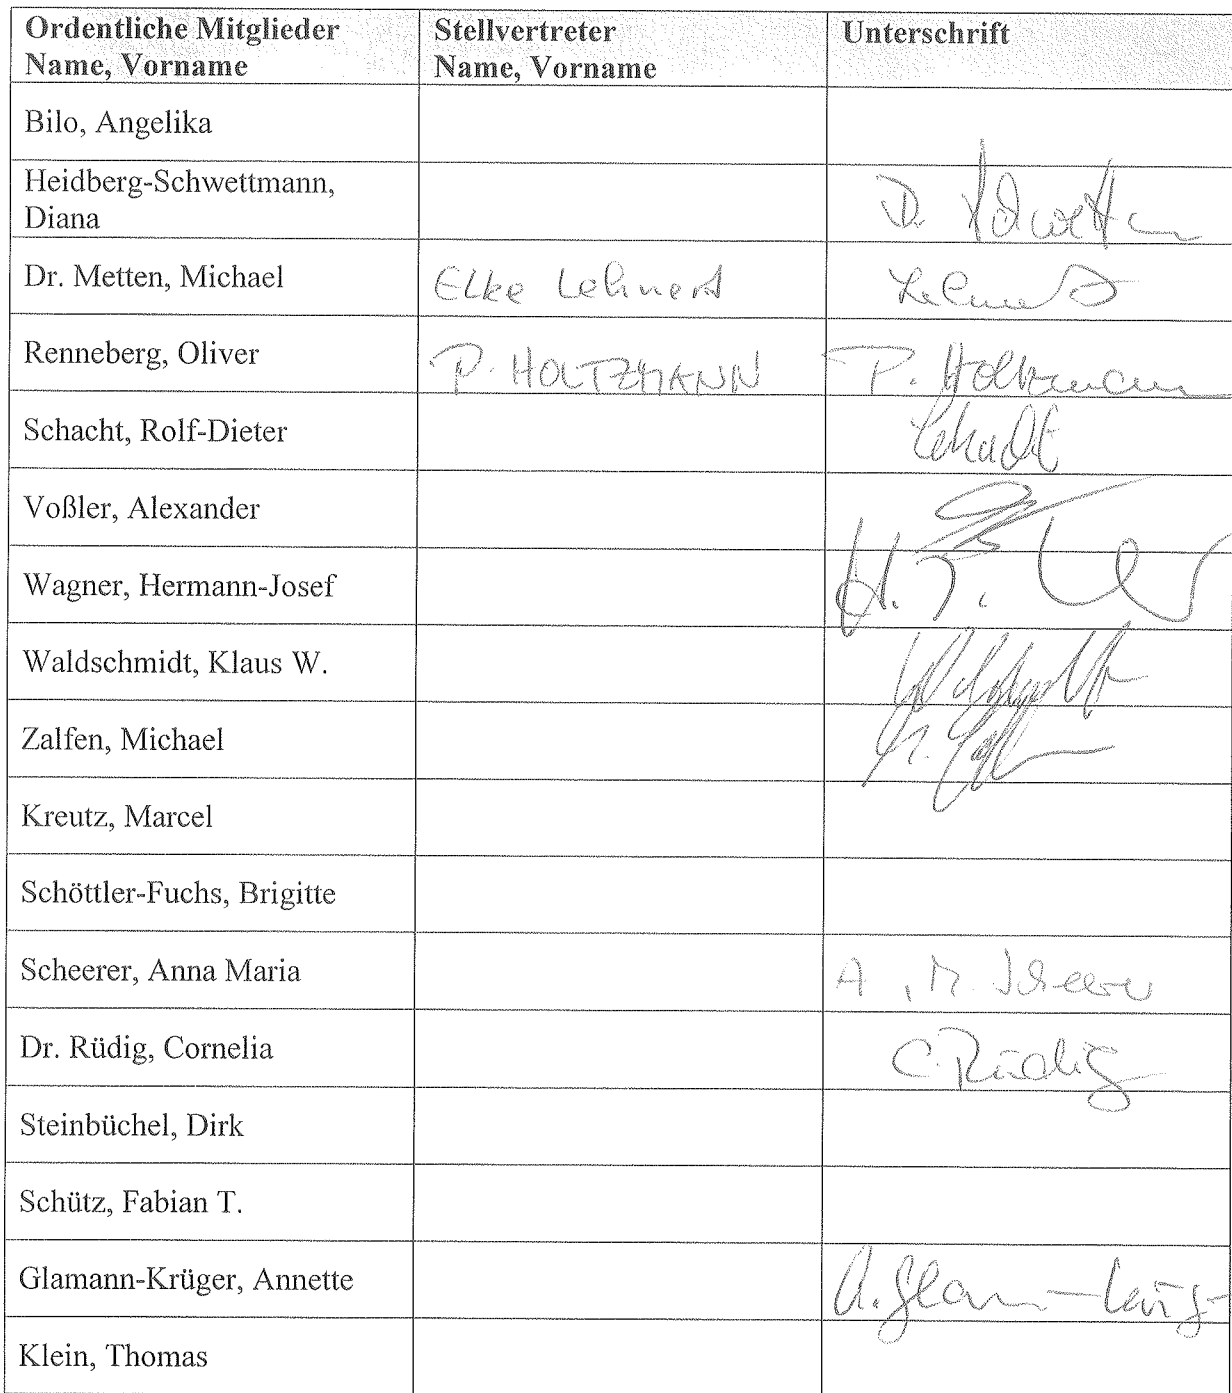 Ordentliche Mitglieder Stellvertreter Unterschrift
Name, Vorname Name, Vorname
Bilo, Angelika
Heidberg-Schwettmann,
Diana D.
Dr. Metten, Michael Elke Lehnert Lehnert
Renneberg, Oliver P. HOLTZMANN P. Holtzmann
Schacht, Rolf-Dieter Schacht
Voßler, Alexander
Wagner, Hermann-Josef H. J.
Waldschmidt, Klaus W.
Zalfen, Michael
Kreutz, Marcel
Schöttler-Fuchs, Brigitte
Scheerer, Anna Maria A. M. Scheerer
Dr. Rüdig, Cornelia C. Rüdig
Steinbüchel, Dirk
Schütz, Fabian T.
Glamann-Krüger, Annette A. Glamann-Krüger
Klein, Thomas